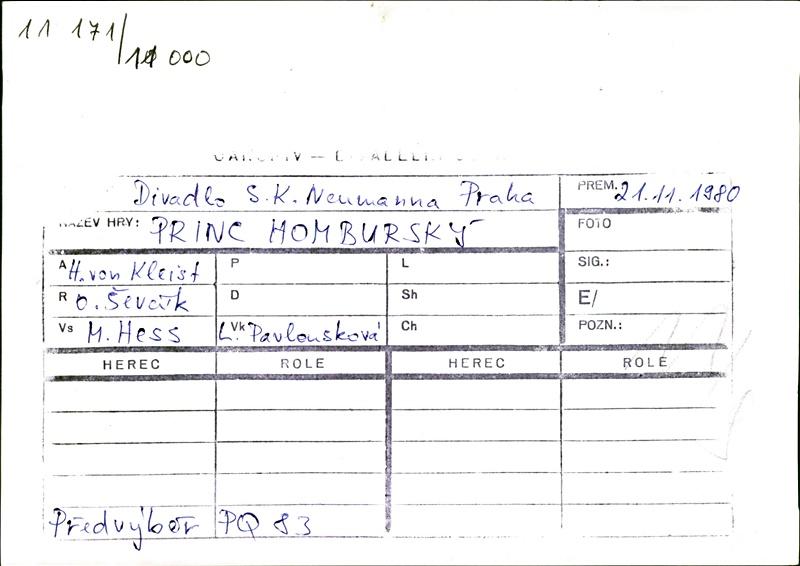 11 171/
11 000
Divadlo S.K. Neumanna Praha PREM. 21.11.1980
NÁZEV HRY: PRINC HOMBURSKÝ FOTO
A H. von Kleist P L SIG.:
R O. Ševčík D Sh E/
Vs M. Hess Vk L. Pavlousková Ch POZN.:
HEREC ROLE HEREC ROLE
Předvýběr PQ 83